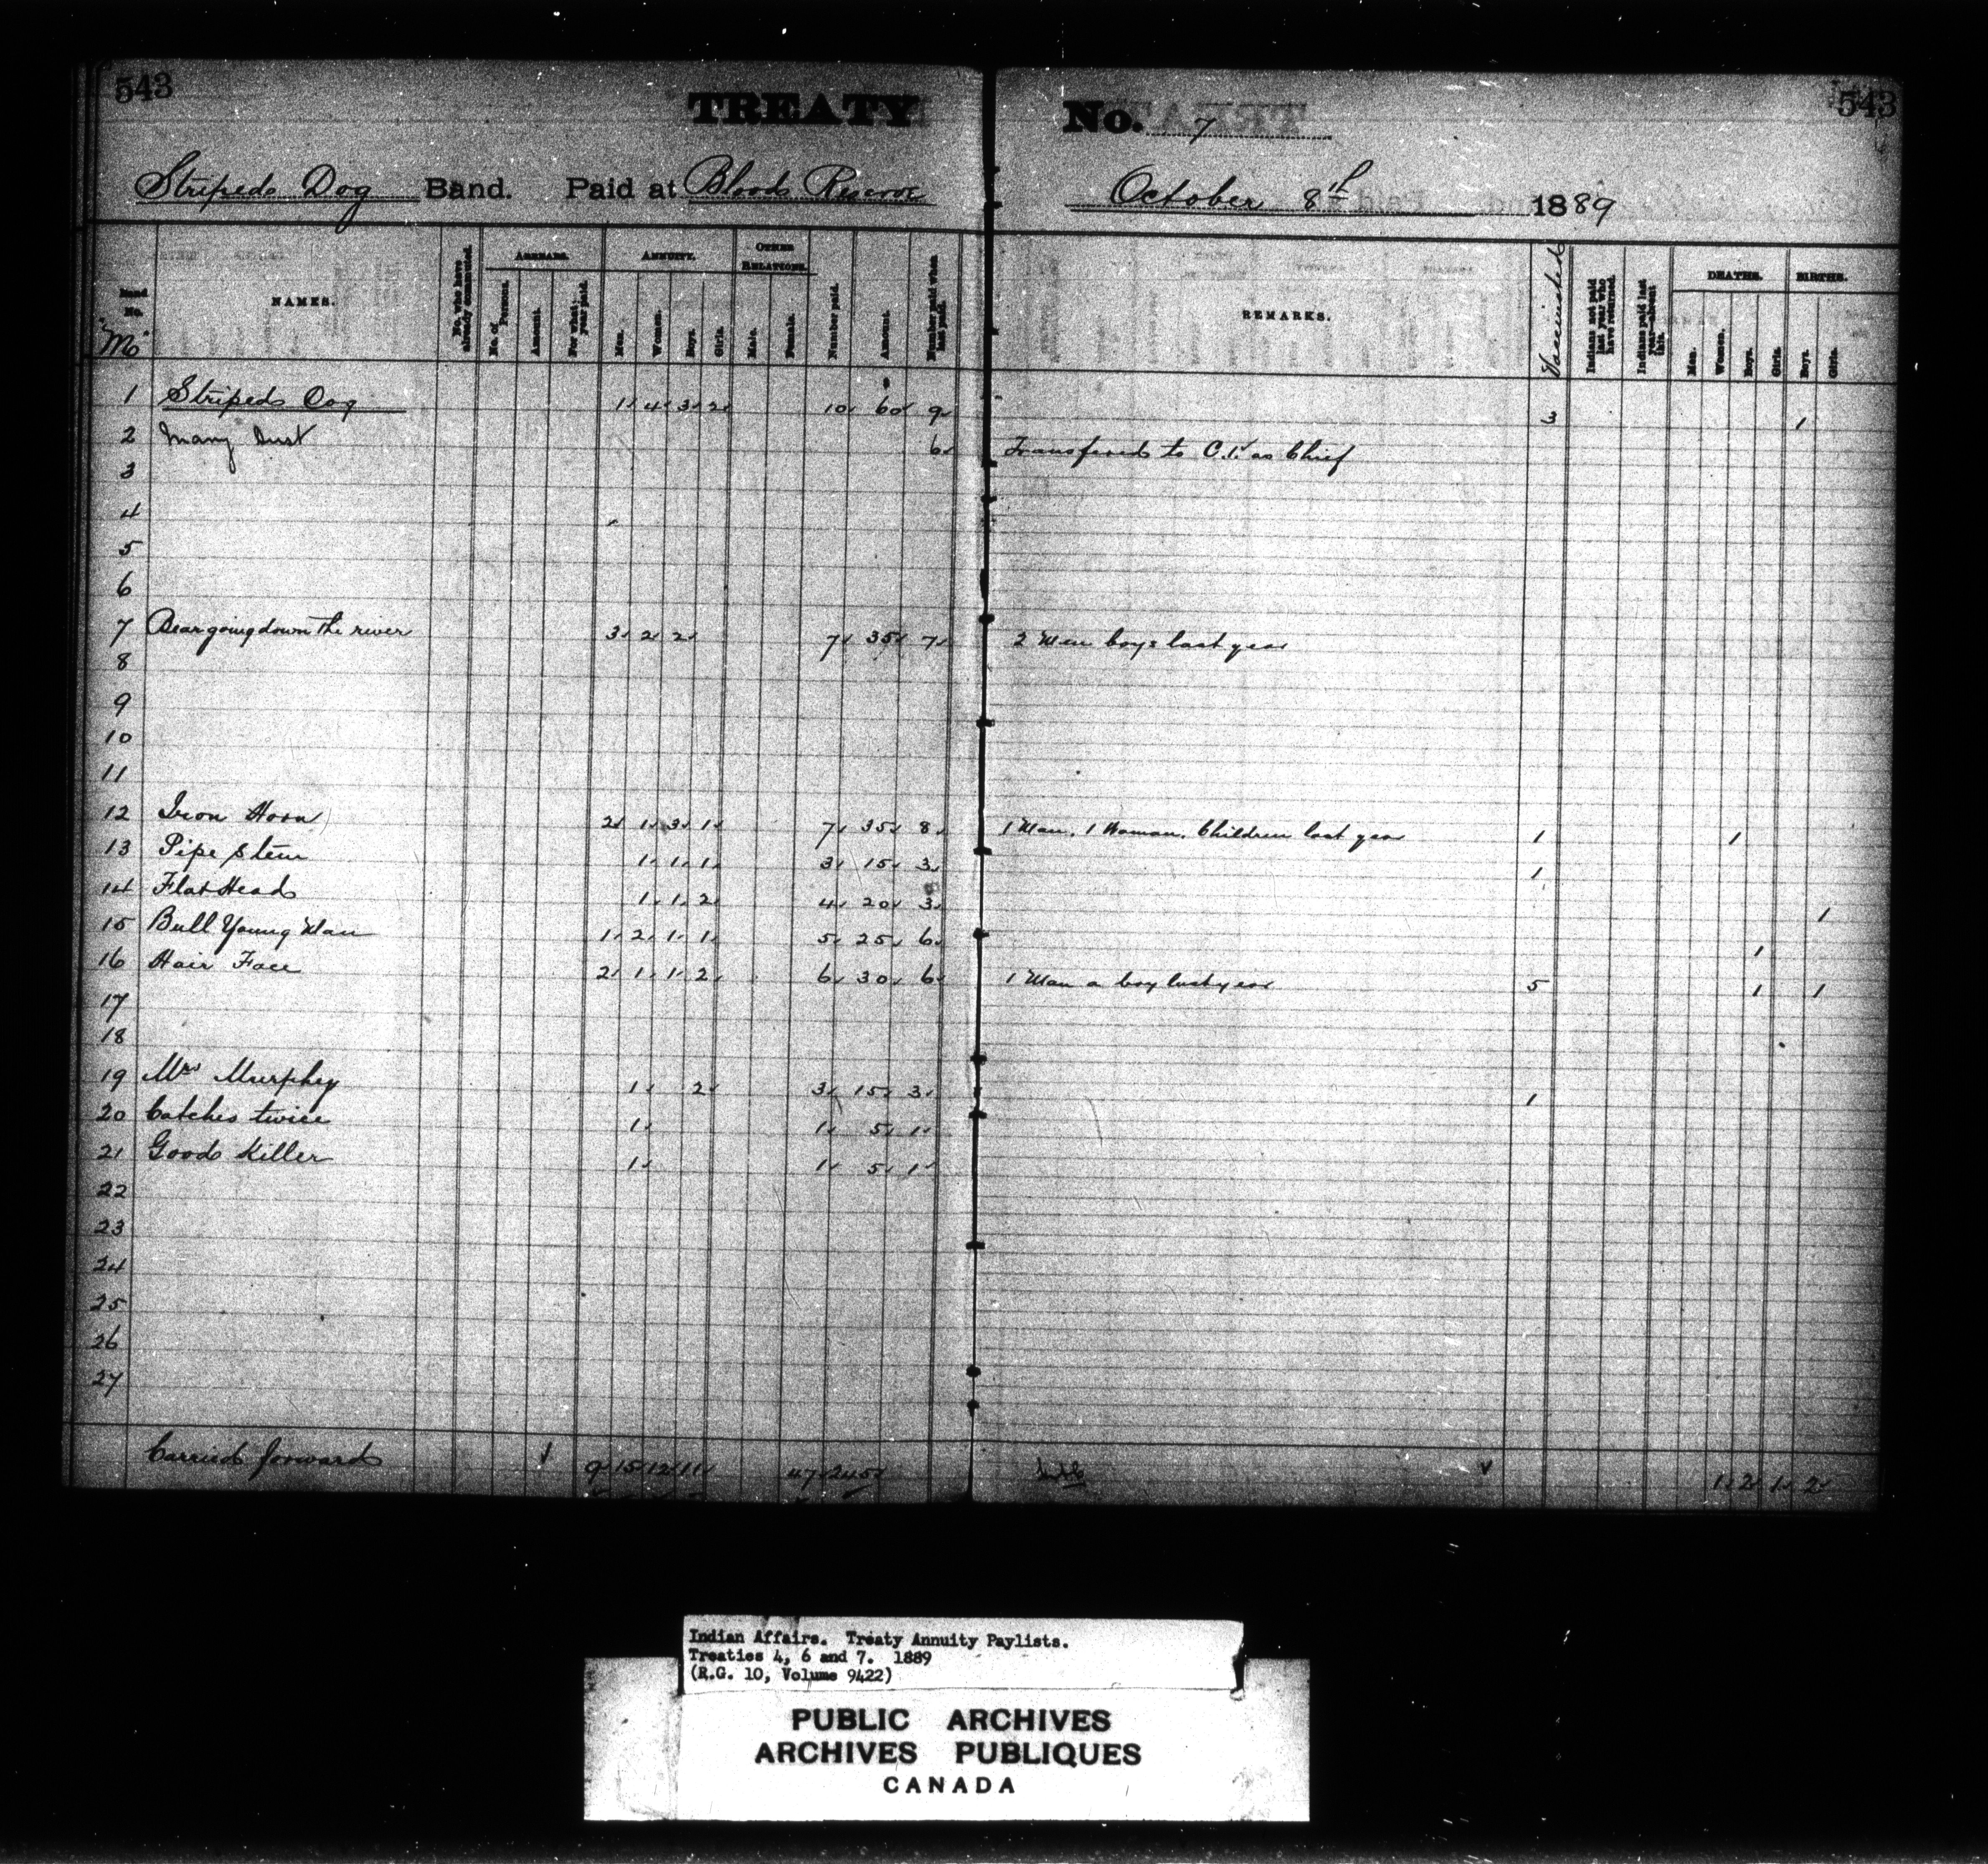 543
TREATY No. 7
543
Striped Dog Band. Paid at Blood Reserve October 8th 1889
Band No. "M"
NAMES.
No. who have already commuted.
ARREARS.
No. of Persons.
Amount.
For what year paid.
ANNUITY.
Men.
Women.
Boys.
Girls.
OTHER RELATIONS.
Male.
Female.
Number paid.
Amount.
Number paid when last paid.
REMARKS.
Vaccinated
Indians not paid last year who have returned.
Indians paid last year—absent this.
DEATHS.
Men.
Women.
Boys.
Girls.
BIRTHS.
Boys.
Girls.
1 Striped Dog 1 4 3 2 10 60 9 3 1
2 Many Dust 6 Transfered to C.1. as Chief
3
4
5
6
7 Bear going down the river 3 2 2 7 35 7 2 Men boys last year
8
9
10
11
12 Iron Horn 2 1 3 1 7 35 8 1 Man. 1 Woman. Children last year 1 1
13 Pipe Stem 1 1 1 3 15 3 1
14 Flat Head 1 1 2 4 20 3 1
15 Bull Young Man 1 2 1 1 5 25 6 1
16 Hair Face 2 1 1 2 6 30 6 1 Man a boy last year 5 1 1
17
18
19 Mrs Murphey 1 2 3 15 3 1
20 Catches twice 1 1 5 1
21 Good Killer 1 1 5 1
22
23
24
25
26
27
Carried forward 9 15 12 11 47 245 1 2 1 2
Indian Affairs. Treaty Annuity Paylists.
Treaties 4, 6 and 7. 1889
(R.G. 10, Volume 9422)
PUBLIC ARCHIVES
ARCHIVES PUBLIQUES
CANADA